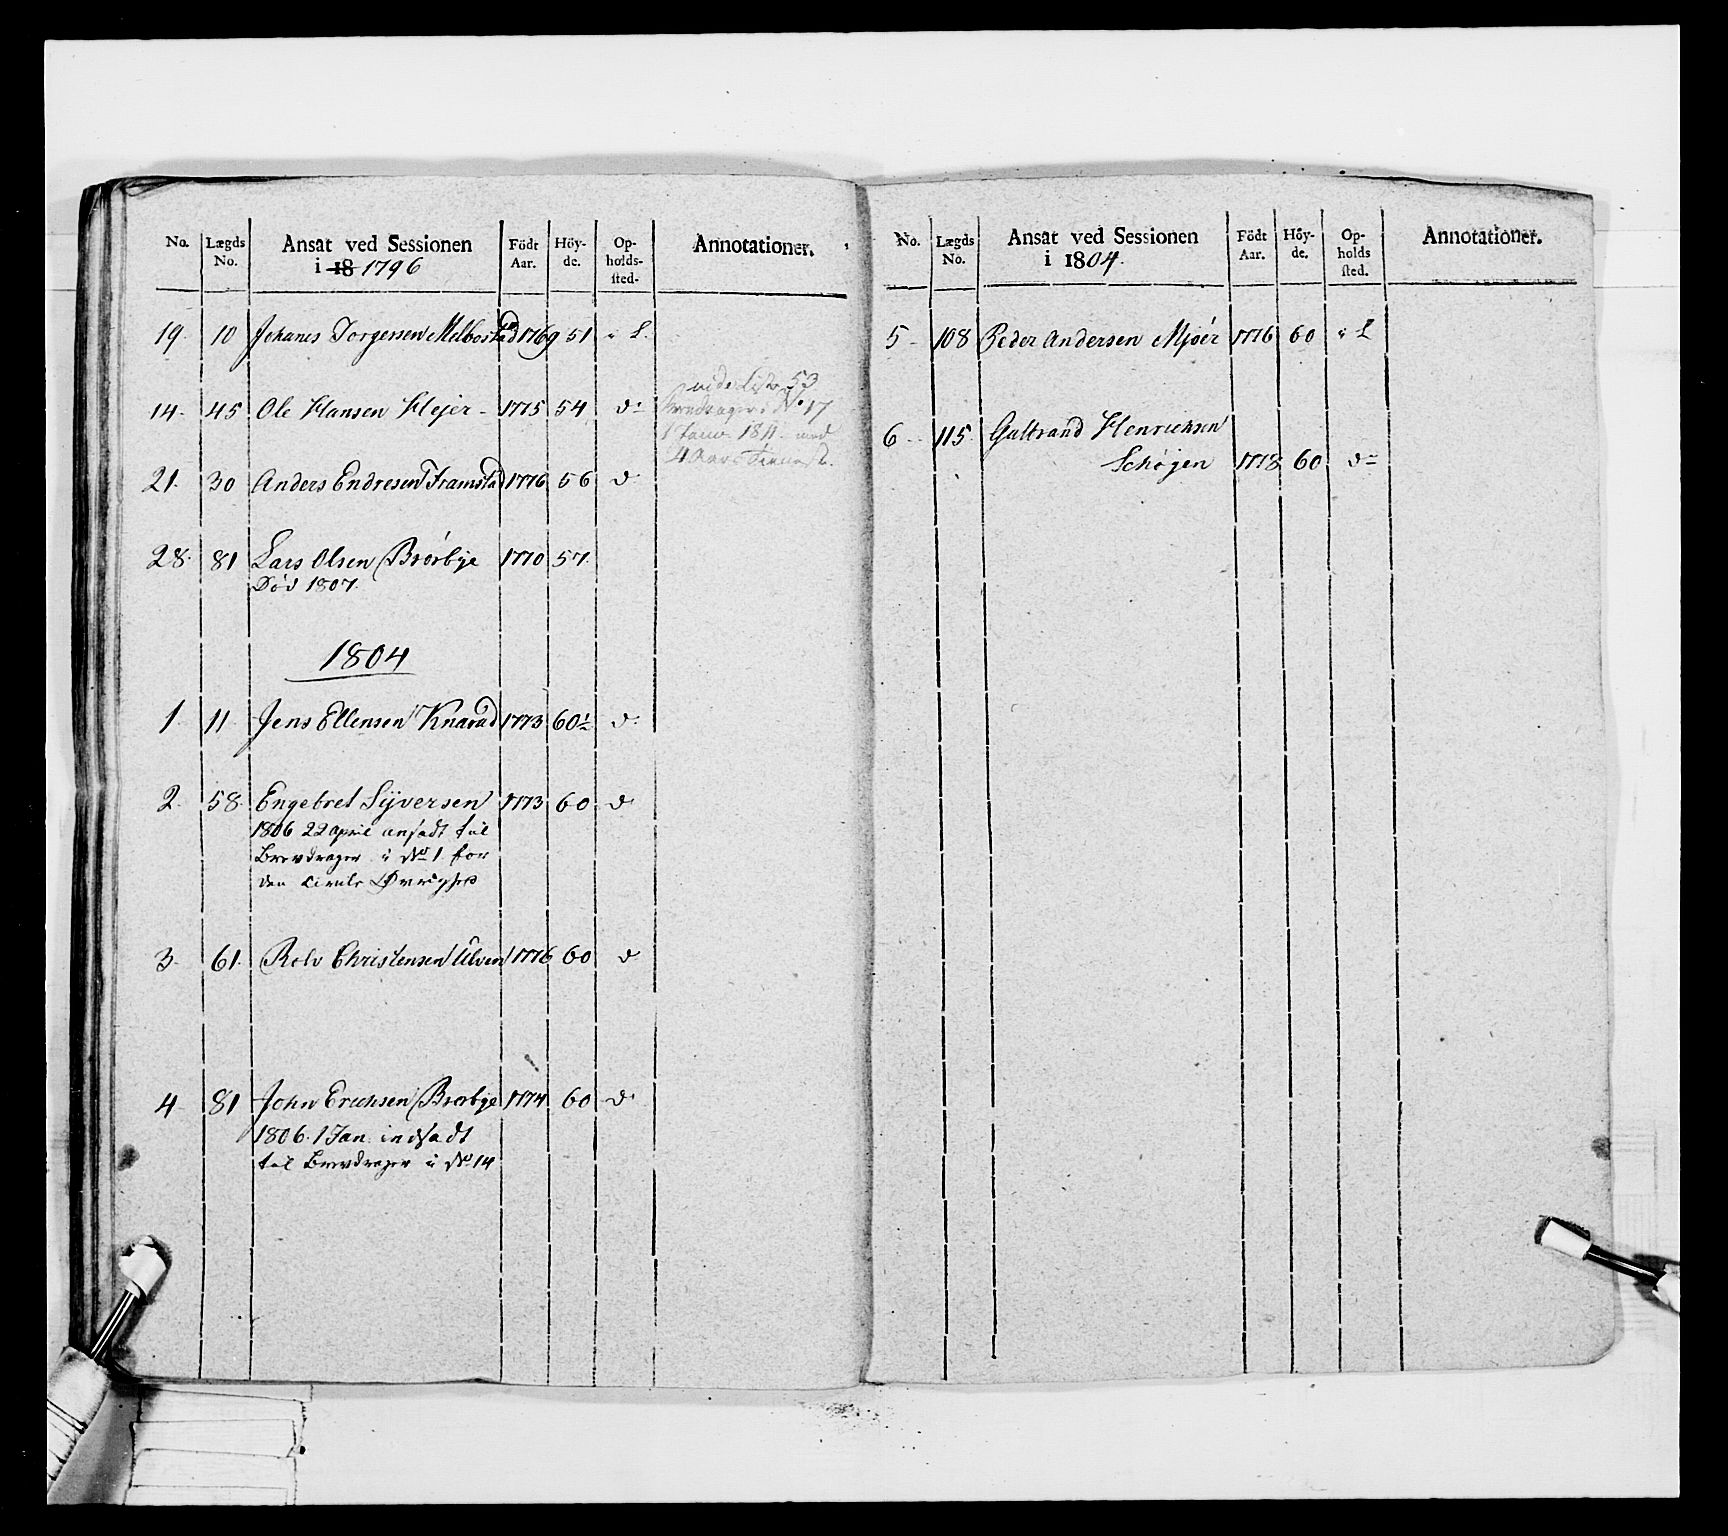 No. Lægds No. Ansat ved Sessionen i 18 1796 Födt Aar. Höy-de. Op-holds-sted. Annotationer.
19. 10 Johanes Jorgensen Melbostad 1769 51 i L.
14. 45 Ole Hansen Hejer 1775 54 do
vide Liste 53
Brevdrager i No 17
1 Janv. 1811 med
4 Aars Tieneste.
21. 30 Anders Endresen Framstad 1776 56 do
28. 81 Lars Olsen Brørbye 1770 57.
Død 1807.
1804
1. 11 Jens Ellensen Knarud 1773 60½ do
2. 58. Engebret Syversen 1773 60 do
1806 22 april ansadt til
Brevdrager i No 1 for
den Civile Øvrighed
3. 61. Rolv Christensen Ulven 1776 60 do
4. 81 John Erichsen Brørbye 1774 60 do
1806. 1 Jan. indsadt
til Brevdrager i No 14
No. Lægds No. Ansat ved Sessionen i 1804. Födt Aar. Höy-de. Op-holds sted. Annotationer.
5. 108 Peder Andersen Mjøer 1776 60 i L
6. 115. Gulbrand Henrichsen
Schøjen 1778 60 do